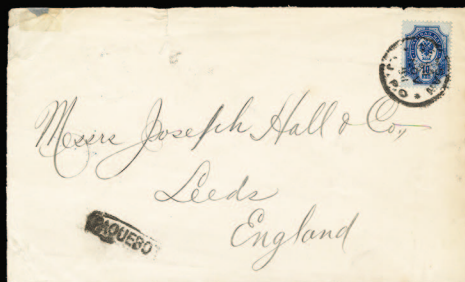 Messrs Joseph Hall & Co.,
Leeds
England
PAQUEBO